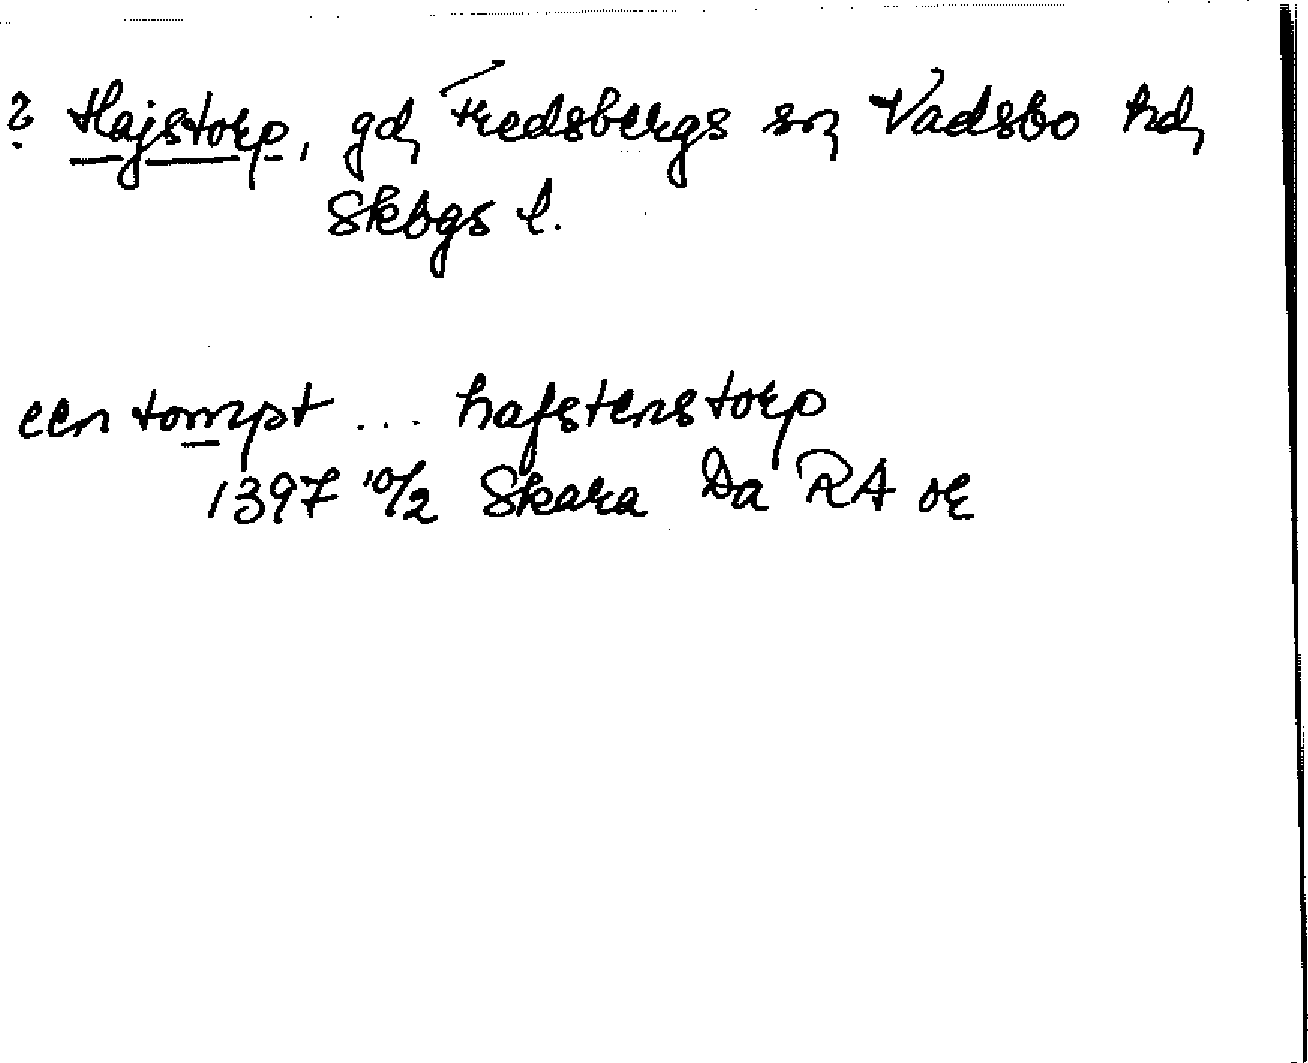 ? Hajstorp, gd, Fredsbergs sn, Vadsbo hd,
Skbgs l.
een tompt ... hafstenstorp
1397 10/2 Skara Da RA or